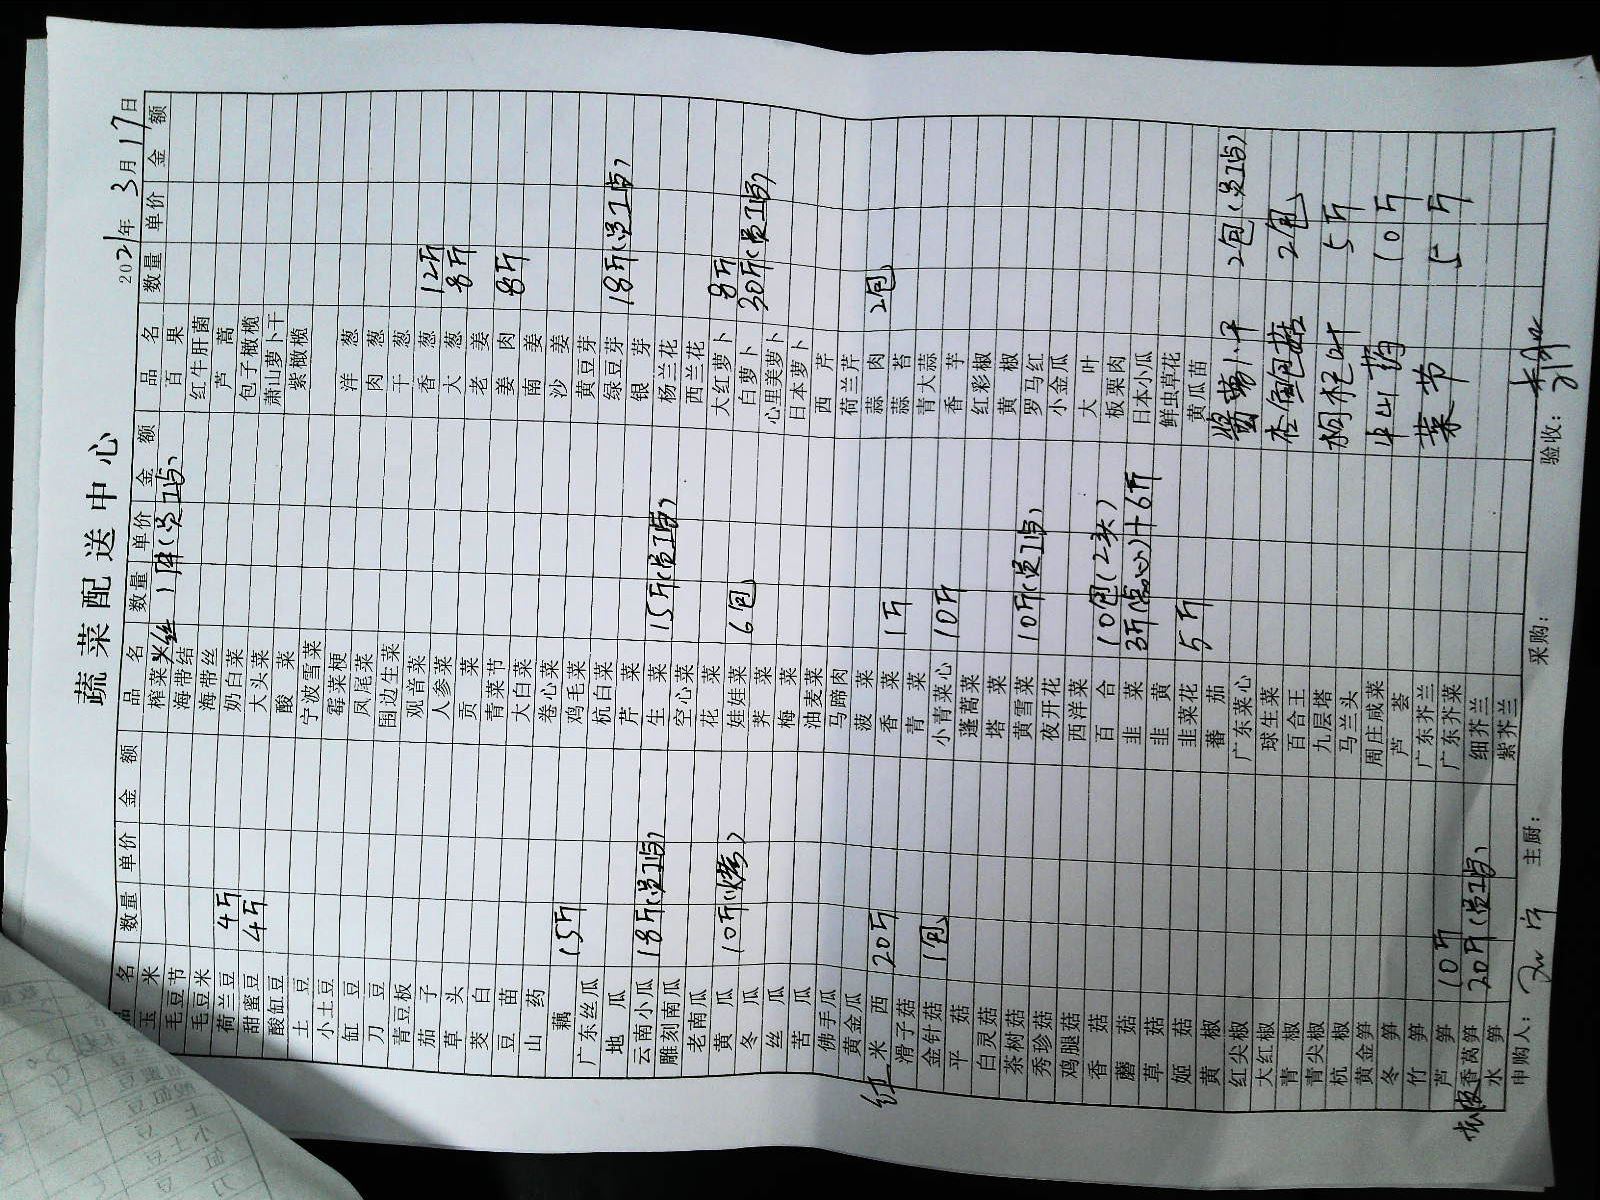 蔬菜配送中心
2021年3月17日
品名 数量 单价 金额 品名 数量 单价 金额 品名 数量 单价 金额
玉米 榨菜丝 1 (员工点) 百果
毛豆节 海带结 红牛肝菌
毛豆米 海带丝 芦蒿
荷兰豆 4斤 奶白菜 包子橄榄
甜蜜豆 4斤 大头菜 萧山萝卜干
酸缸豆 酸菜 紫橄榄
土豆 宁波雪菜
小土豆 霉菜梗 洋葱
缸豆 凤尾菜 肉葱
刀豆 围边生菜 干葱
青豆板 观音菜 香葱 12斤
茄子 人参菜 大葱 8斤
草头 贡菜 老姜
茭白 青菜节 姜肉 8斤
豆苗 大白菜 南姜
山药 卷心菜 沙姜
藕 15斤 鸡毛菜 黄豆芽
广东丝瓜 杭白菜 绿豆芽 18斤(员工点)
地瓜 芹菜 银芽
云南小瓜 18斤(员工点) 生菜 15斤(员工点) 杨兰花
雕刻南瓜 空心菜 西兰花
老南瓜 花菜 大红萝卜 8斤
黄瓜 10斤(烤) 娃娃菜 6包 白萝卜 30斤(员工点)
冬瓜 荠菜 心里美萝卜
丝瓜 梅菜 日本萝卜
苦瓜 油麦菜 西芹
佛手瓜 马蹄肉 荷兰芹
黄金瓜 菠菜 蒜肉 2包
红米西 20斤 香菜 1斤 蒜苔
滑子菇 青菜 青大蒜
金针菇 1包 小青菜心 10斤 香芋
平菇 蓬蒿菜 红彩椒
白灵菇 塔菜 黄椒
茶树菇 黄雪菜 10斤(员工点) 罗马红
秀珍菇 夜开花 小金瓜
鸡腿菇 西洋菜 大叶
香菇 百合 10包(2头) 板栗肉
蘑菇 韭菜 3斤(点心)+6斤 日本小瓜
草菇 韭黄 鲜虫草花
姬菇 韭菜花 5斤 黄瓜苗
黄椒 蕃茄 酱萝卜干 2包(员工点)
红尖椒 广东菜心
大红椒 球生菜 杏鲍菇 2包
青椒 百合王
青尖椒 九层塔 枸杞叶 5斤
杭椒 马兰头
黄金笋 周庄咸菜 山药 10斤
冬笋 芦荟
竹笋 广东芥兰 菜节 5斤
芦笋 10斤 广东芥菜
去皮香莴笋 20斤(员工点) 细芥兰
水笋 紫芥兰
申购人: 主厨: 采购: 验收: